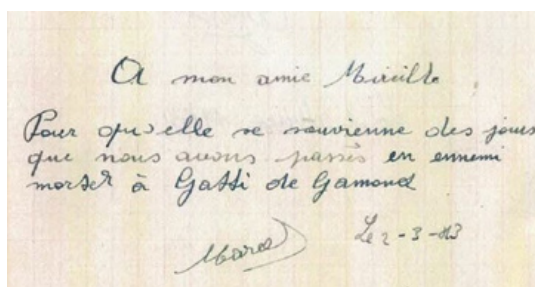 A mon amie Mireille
Pour qu'elle se souvienne des jours
que nous avons passés en ennemi
mortel à Gatti de Gamond
Le 2-3-43